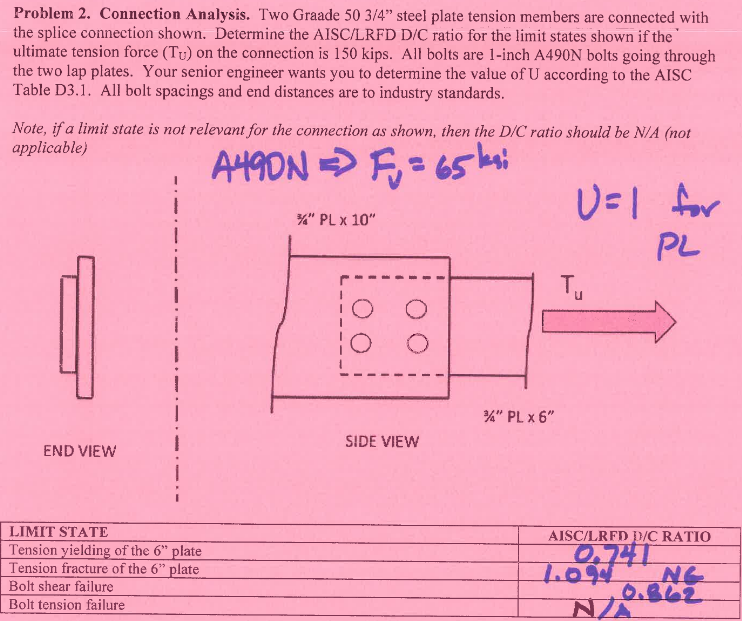 Problem 2. Connection Analysis. Two Graade 50 3/4” steel plate tension members are connected with
the splice connection shown. Determine the AISC/LRFD D/C ratio for the limit states shown if the
ultimate tension force (TU) on the connection is 150 kips. All bolts are 1-inch A490N bolts going through
the two lap plates. Your senior engineer wants you to determine the value of U according to the AISC
Table D3.1. All bolt spacings and end distances are to industry standards.
Note, if a limit state is not relevant for the connection as shown, then the D/C ratio should be N/A (not
applicable)
A490N ⇒ Fv = 65 ksi
U=1 for
PL
¾” PL x 10”
Tu
¾” PL x 6”
END VIEW
SIDE VIEW
LIMIT STATE AISC/LRFD D/C RATIO
Tension yielding of the 6” plate 0.741
Tension fracture of the 6” plate 1.094 NG
Bolt shear failure 0.862
Bolt tension failure N/A